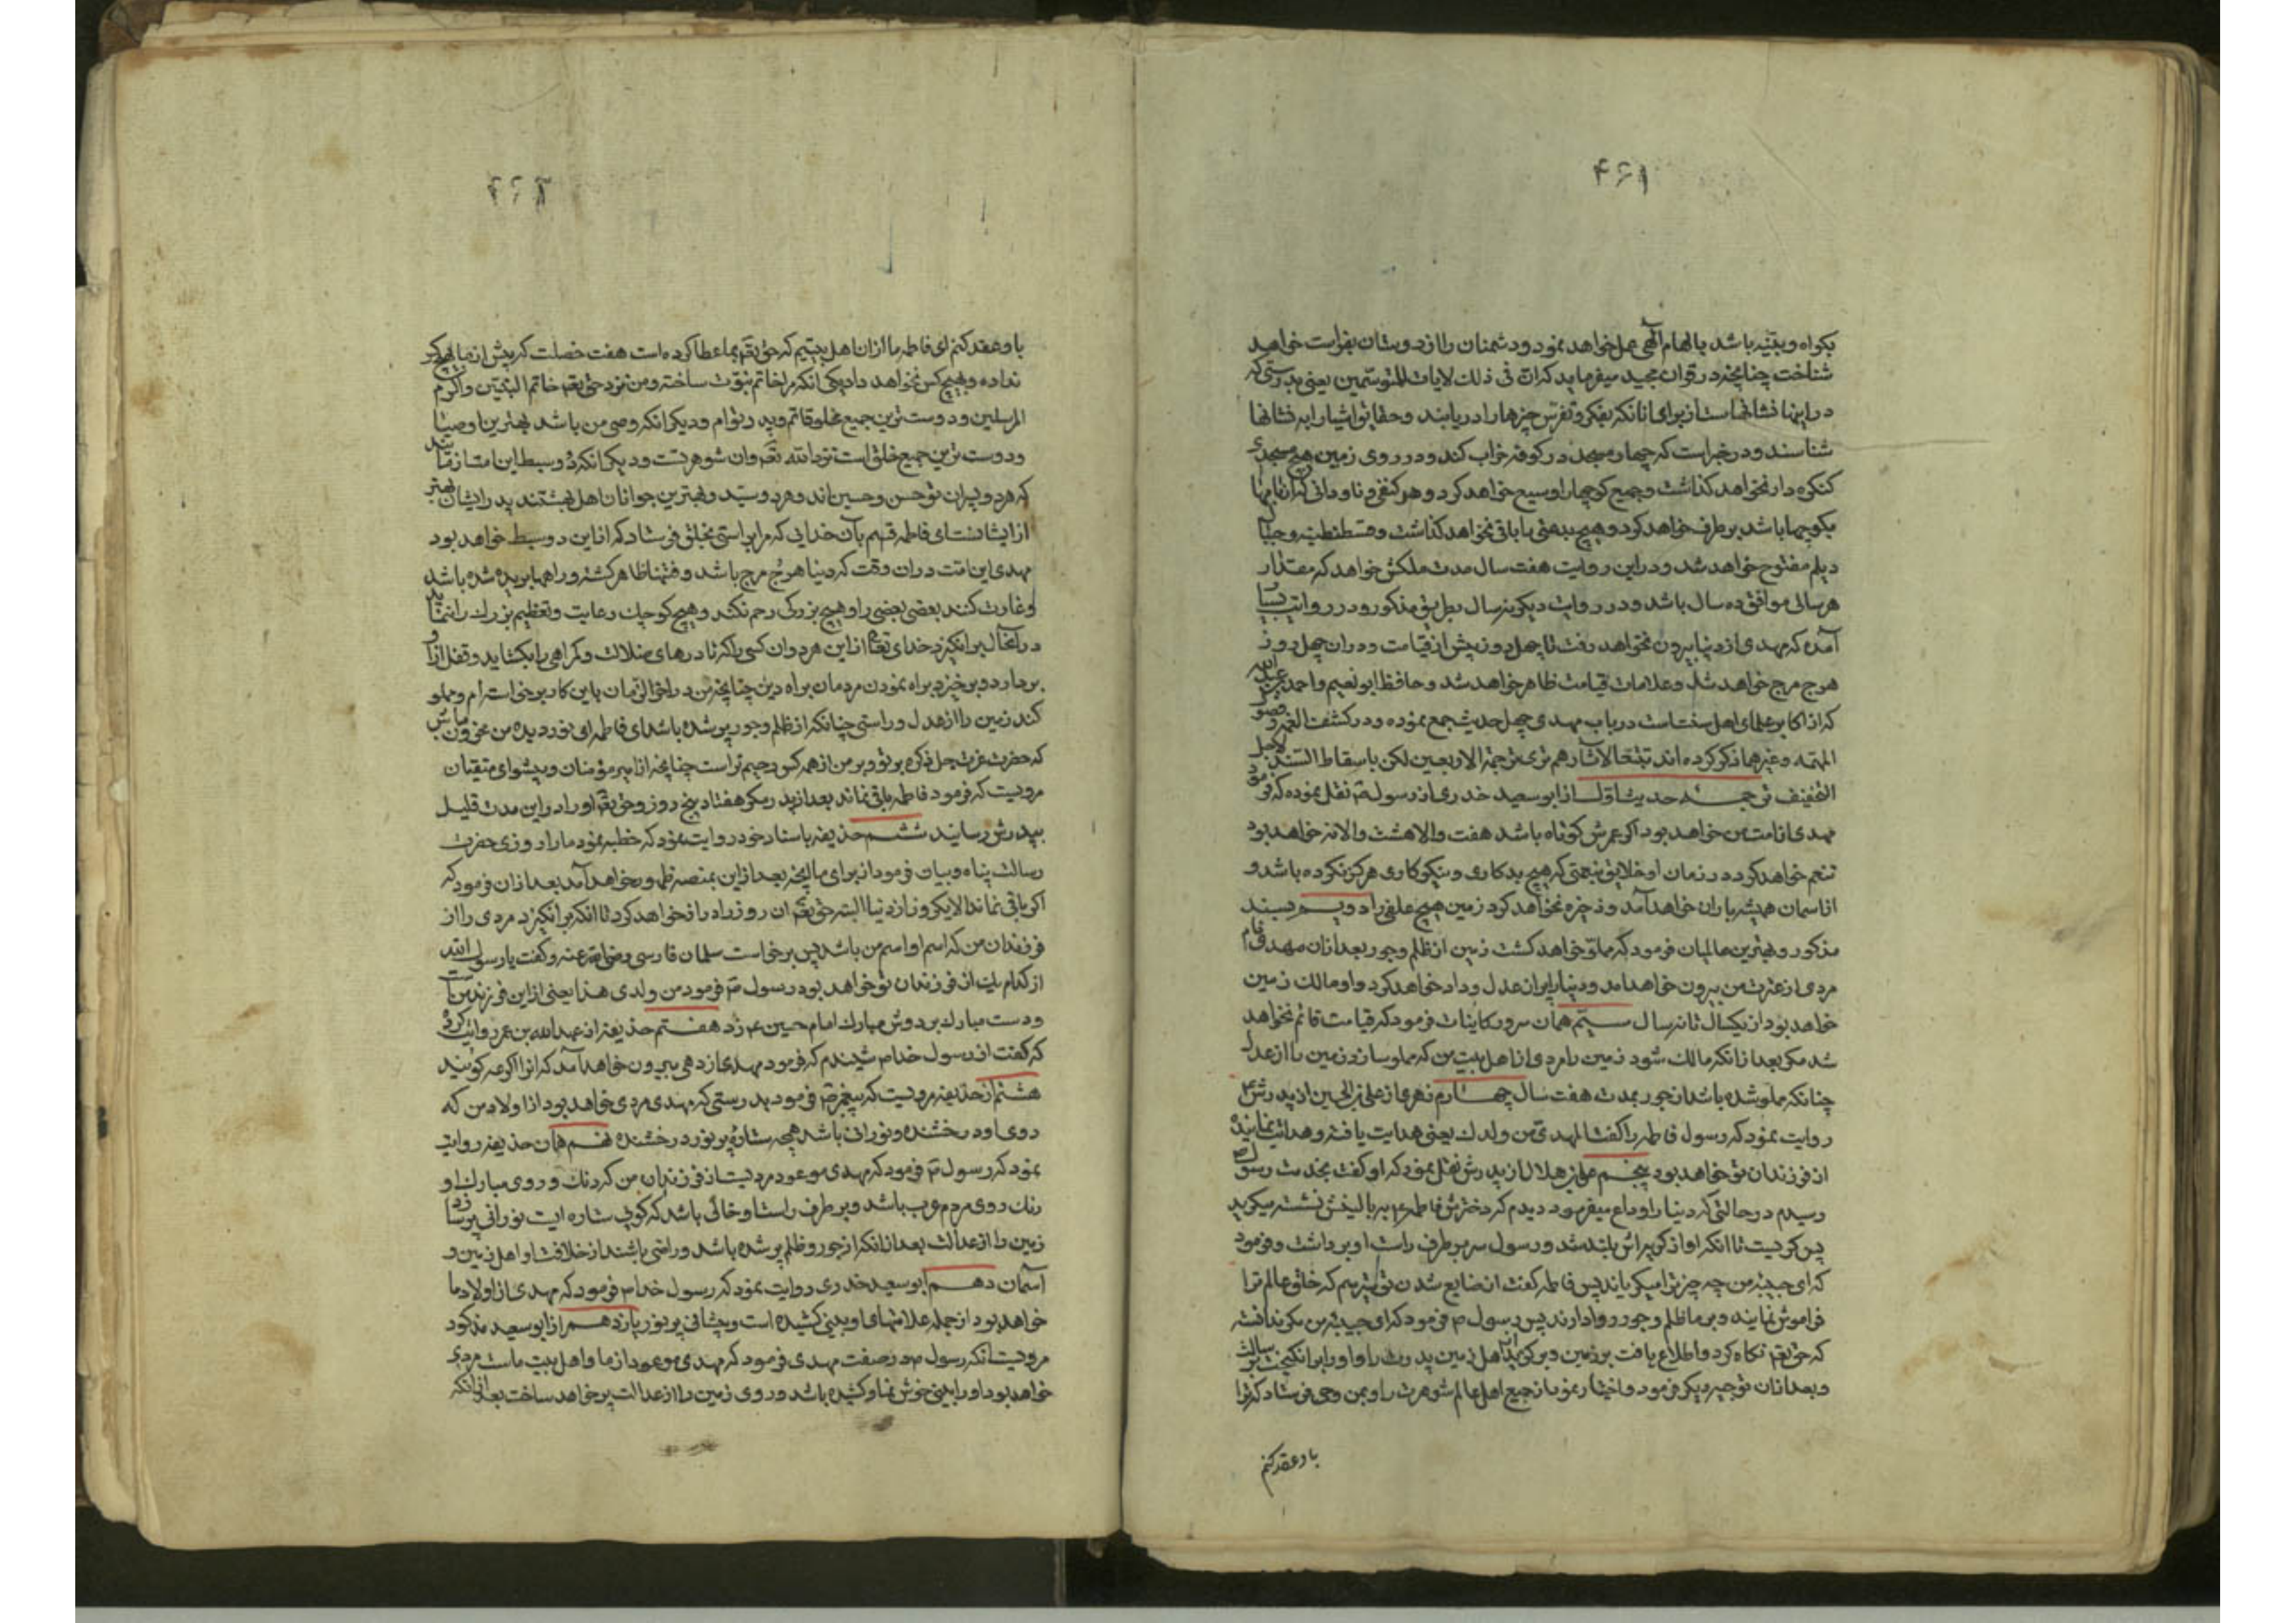 ۴۶۱
بکواه و بینه باشد بالهام آلهی عمل خواهد نمود و دشمنان را از دوستان بفراست خواهد
شناخت چنانچه در قرآن مجید میفرماید که ان فی ذلک لایات للمتوسمین یعنی بدرستی که
در اینها نشانهاست از برای انانکه بفکر و تفرس چیزها را دریابند و حقایق اشیا را به نشانها
شناسند و در خبر است که چهار مسجد در کوفه خراب کند و در روی زمین هیچ مسجدی
کنکره دار نخواهد کذاشت و جمیع کوچها را وسیع خواهد کرد و هر کنفی و ناودانی که از بامها
بکوچها باشد بر طرف خواهد کرد و هیچ بدعتی را باقی نخواهد کذاشت و قسطنطنیه و جبال
دیلم مفتوح خواهد شد و در این روایت هفت سال مدت ملکش خواهد که مقدار
هر سالی موافق ده سال باشد و در روایت دیکر نه سال بطریق مذکور و در روایت بسیار
آمده که مهدی از دنیا بیرون نخواهد رفت تا چهل روز پیش از قیامت و در ان چهل روز
هرج مرج خواهد شد و علامات قیامت ظاهر خواهد شد و حافظ ابو نعیم و احمد بن عبد الله
که از اکابر علمای اهل سنت است در باب مهدی چهل حدیث جمع نموده و در کشف الغمه و فصول
المهمه و غیرهما ذکر کرده اند تتبعا لآثارهم نری ترجمة الاربعین لکن باسقاط السند لاجل
التخفیف ترجمه حدیث اول از ابو سعید خدری از رسول ص نقل نموده که فرمود
مهدی از امت من خواهد بود اکر عمرش کوتاه باشد هفت والا هشت والا نه خواهد بود
تنعم خواهد کرد در زمان او خلایق بنعمتی که هیچ بدکاری و نیکوکاری هرکز نکرده باشد و
از اسمان همیشه باران خواهد آمد و ذخیره نخواهد کرد زمین هیچ علفی را دویم بسند
مذکور و بهترین عالمیان فرمود که مملو خواهد کشت زمین از ظلم و جور بعد از ان مهد قایم
مردی از عترت من بیرون خواهد امد و دنیا را پر از عدل و داد خواهد کرد و او مالک زمین
خواهد بود از یکسال تا نه سال سیم همان سرور کاینات فرمود که قیامت قائم نخواهد
شد مکر بعد از انکه مالک شود زمین را مردی از اهل بیت من که مملو سازد زمین را از عدل
چنانکه مملو شده باشد از جور بمدت هفت سال چهارم زهری از علی بن الحسین از پدرش ع
روایت نمود که رسول فاطمه را کفت المهدی من ولدک یعنی هدایت یافته و هدایت نماینده
از فرزندان تو خواهد بود پنجم علی بن هلال از پدرش نقل نمود که او کفت بخدمت رسول ص
رسیدم در حالتی که دنیا را وداع میفرمود دیدم که دخترش فاطمه ع بر بالینش نشسته میکرید
پس کریست تا انکه اواز کریه اش بلند شد و رسول سر بر طرف راست او برداشت و فرمود
که ای حبیبه من چه چیز ترا میکریاند پس فاطمه کفت از ضایع شدن تو میترسم که خلق عالم ترا
فراموش نمایند و بر ما ظلم و جور روا دارند پس رسول ص فرمود که ای حبیبه من مکر ندانسته
که حق تعه نکاه کرد و اطلاع یافت بر زمین و برکزید از اهل زمین پدرت را و او را برانکیخت برسالت
و بعد از ان توجه دیکر فرمود و اختیار نمود از جمیع اهل عالم شوهرت را و بمن وحی فرستاد که ترا
باو عقد کنم
۴۶۲
باو عقد کنم ای فاطمه ما از ان اهل بیتیم که حق تعه بما عطا کرده است هفت خصلت که پیش از ما بهیچ کس
نداده و بهیچ کس نخواهد داد یکی انکه مرا خاتم نبوت ساخته و من نزد حق تعه خاتم النبیین و اکرم
المرسلین و دوست ترین جمیع مخلوقاتم و پدر توام و دیکر انکه وصی من باشد بهترین اوصیا
و دوست ترین جمیع خلق است نزد الله تعه و ان شوهر تست و دیکر انکه دو سبط این امت از ما باشند
که هر دو پسران تو حسن و حسین اند و هر دو سید و بهترین جوانان اهل بهشتند پدر ایشان بهتر
از ایشانست ای فاطمه قسم بآن خدایی که مرا براستی بخلق فرستاد که از این دو سبط خواهد بود
مهدی این امت در ان وقت که دنیا هرج مرج باشد و فتنها ظاهر کشته و راهها بریده شده باشد
و غارت کنند بعضی بعضی را و هیچ بزرک رحم نکند و هیچ کوچک رعایت و تعظیم بزرک را ننماید
در آنحال برانکیزد خدای تعا از این هر دو ان کسی را که تا درهای ضلالت و کمراهی را بکشاید و قفل از آن
بردارد و برخیزد براه نمودن مردمان براه دین چنانچه من در اخر الزمان باین کار برخواسته ام و مملو
کند زمین را از عدل و راستی چنانکه از ظلم و جور پر شده باشد ای فاطمه ای نور دیده من محزون مباش
که حضرت عزت جل ذکره بر تو و بر من از همه کس رحیم تر است چنانچه از امیر مؤمنان و پیشوای متقیان
مرویست که فرمود فاطمه باقی نماند بعد از پدر مکر هفتاد پنج روز و حق تعه او را در این مدت قلیل
بپدرش رسانید ششم حذیفه باسناد خود روایت نمود که خطبه نمود ما را روزی حضرت
رسالت پناه و بیان فرمود از برای ما انچه بعد از این بمنصه ظهور خواهد آمد بعد از ان فرمود که
اکر باقی نماند الا یکروز از دنیا البته حق تعه ان روز را دراز خواهد کرد تا انکه برانکیزد مردی را از
فرزندان من که اسم او اسم من باشد پس برخاست سلمان فارسی رضی الله عنه و کفت یا رسول الله
از کدام یک از فرزندان تو خواهد بود رسول ص فرمود من ولدی هذا یعنی از این فرزند من است
و دست مبارک بر دوش مبارک امام حسین ع زد هفتم حذیفه از عبد الله بن عمر روایت کرده
که کفت از رسول خدا ص شنیدم که فرمود مهدی از دهی بیرون خواهد آمد که انرا اکرعه کویند
هشتم از حذیفه مرویست که پیغمبر ص فرمود بدرستی که مهدی مردی خواهد بود از اولاد من که
روی او درخشنده و نورانی باشد همچه ستارۀ پر نور درخشنده نهم همان حذیفه روایت
نمود که رسول ص فرمود که مهدی موعود مردیست از فرزندان من که رنک و روی مبارک او
رنک روی مردم عرب باشد و بر طرف راست او خالی باشد که کویی ستاره ایست نورانی پر سازد
زمین را از عدالت بعد از انکه از جور و ظلم پر شده باشد و راضی باشند از خلافت او اهل زمین و
آسمان دهم ابو سعید خدری روایت نمود که رسول خدا ص فرمود که مهدی از اولاد ما
خواهد بود از جمله علامتهای او بینی کشیده است و پیشانی پر نور یازدهم از ابو سعید مذکور
مرویست انکه رسول ص در صفت مهدی فرمود که مهدی موعود از ما و اهل بیت ماست مردی
خواهد بود او را بینی خوش نما و کشیده باشد و روی زمین را از عدالت پر خواهد ساخت بعد از انکه